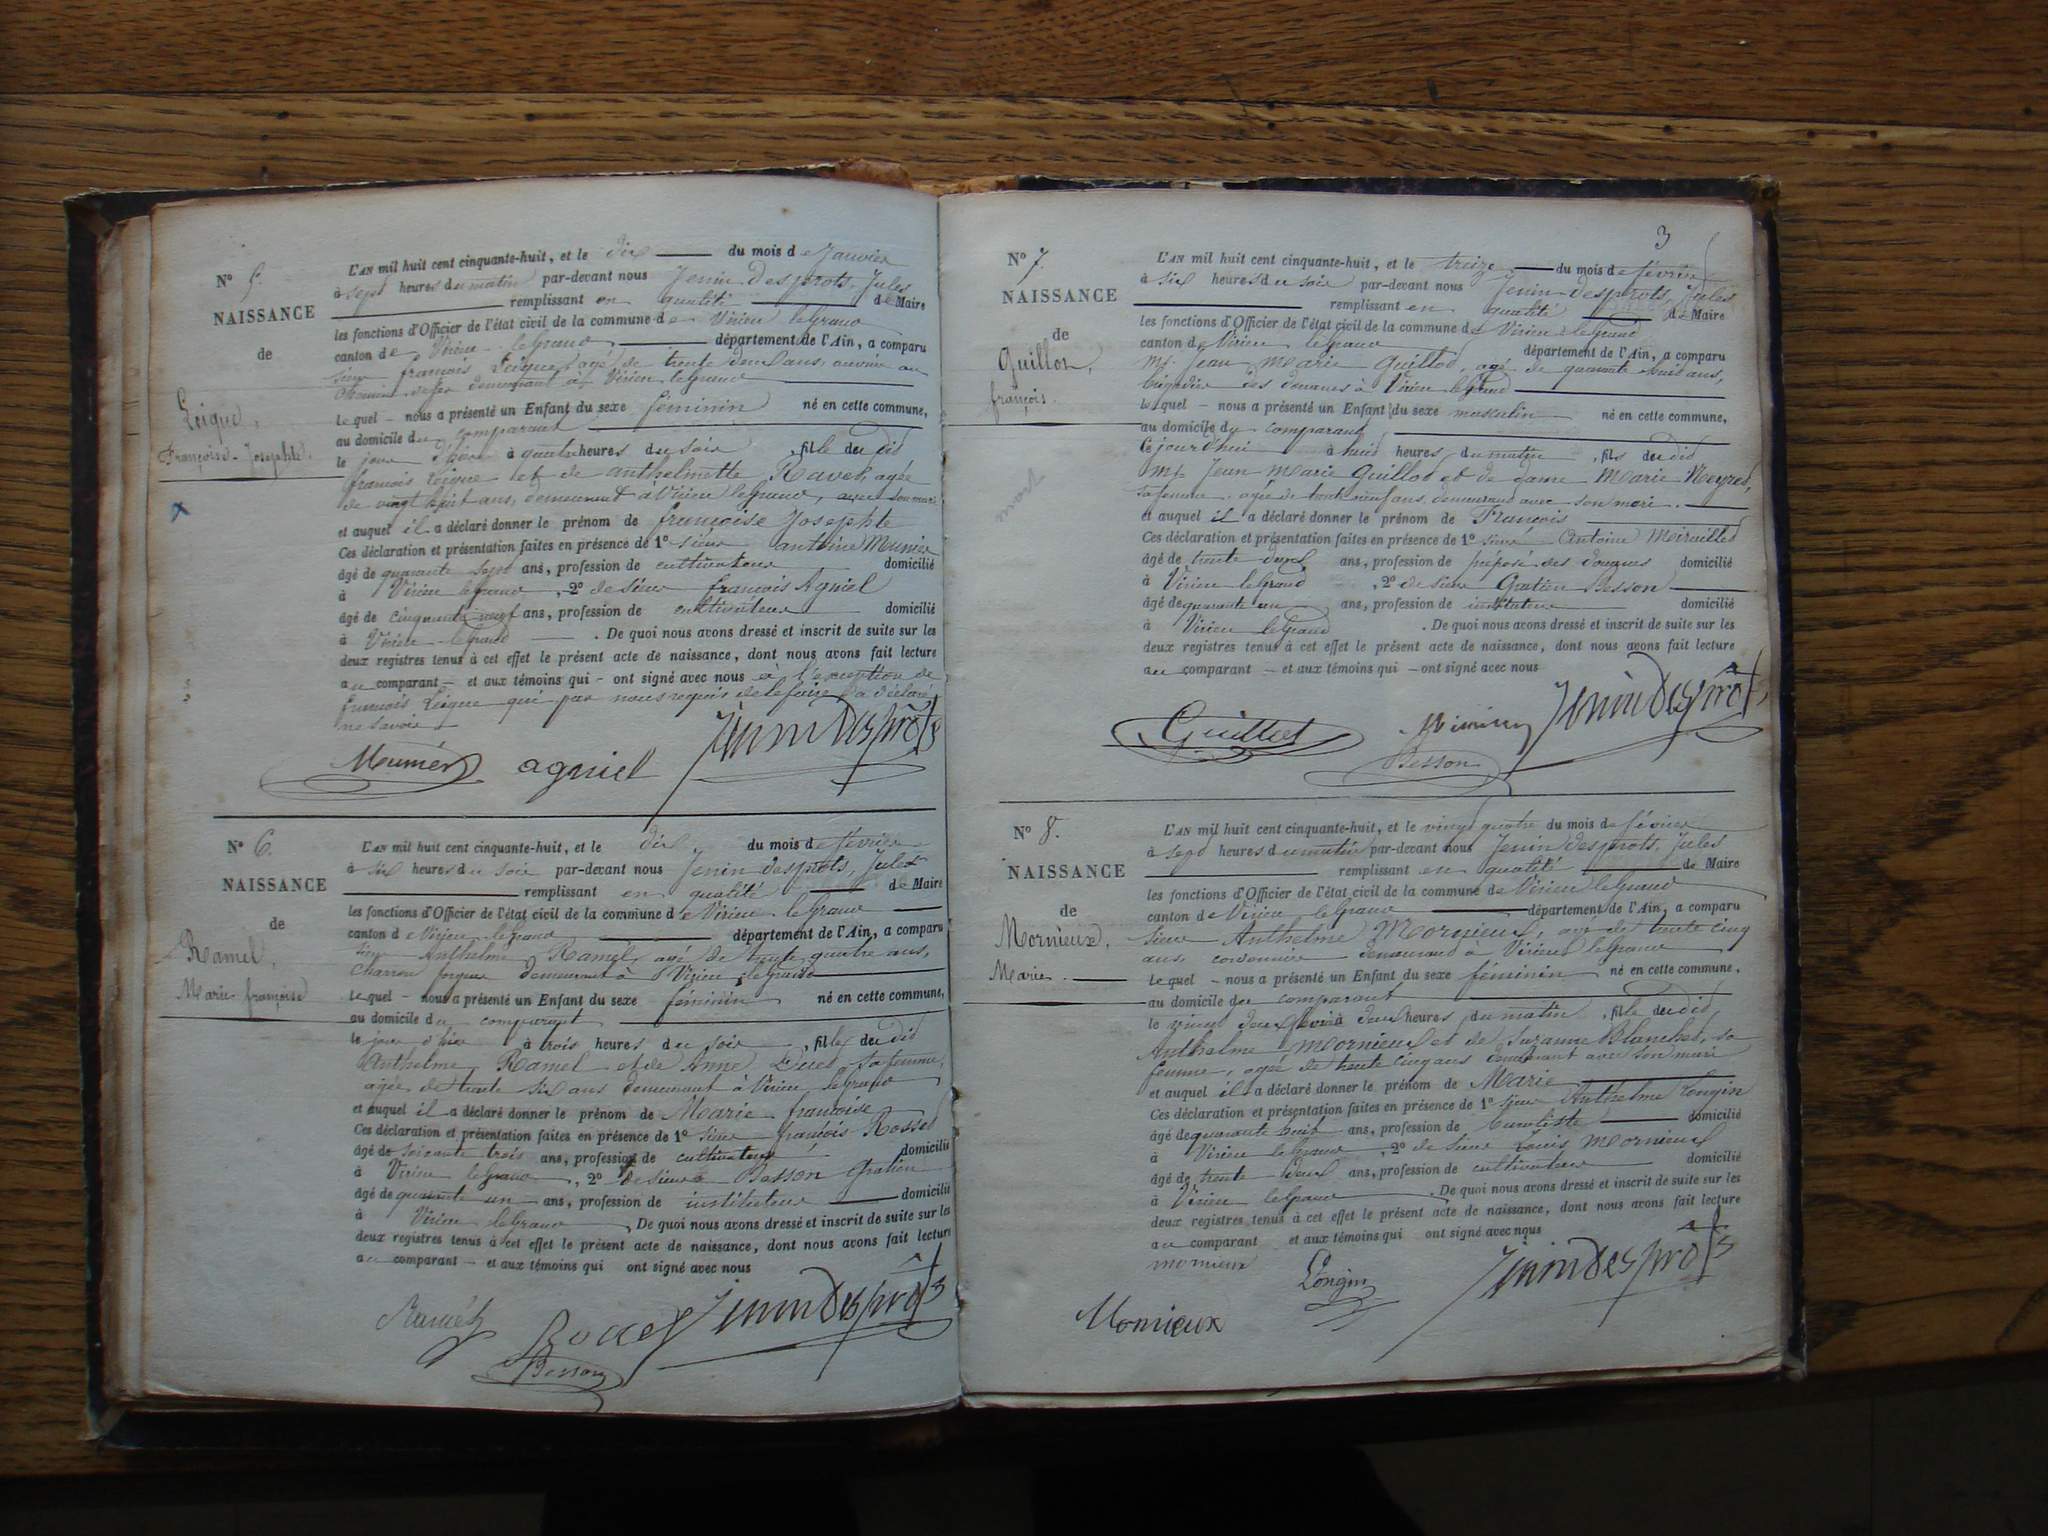 N° 5.
NAISSANCE
de
Leique,
Françoise-Josephte.
L'AN mil huit cent cinquante-huit, et le dix du mois de Janvier
à sept heures du matin par-devant nous Jenin desprots, Jules
remplissant en qualité de Maire
les fonctions d'Officier de l'état civil de la commune de Virieu legrand
canton de Virieu-legrand département de l'Ain, a comparu
sieur françois Leique, agé de trente deux ans, ouvrier au
chemin de fer demeurant à Virieu legrand
Lequel - nous a présenté un Enfant du sexe féminin né en cette commune,
au domicile du comparant
le jour d'hier à quatre heures du soir, fille du dit
françois Leique et de anthelmette Ravet, agée
de vingt huit ans, demeurant à Virieu legrand, avec son mari
et auquel il a déclaré donner le prénom de françoise Josephte
Ces déclaration et présentation faites en présence de 1° sieur antoine Munier
âgé de quarante sept ans, profession de cultivateur domicilié
à Virieu legrand, 2° de sieur françois Agniel
âgé de cinquante neuf ans, profession de cultivateur domicilié
à Virieu-legrand. De quoi nous avons dressé et inscrit de suite sur les
deux registres tenus à cet effet le présent acte de naissance, dont nous avons fait lecture
au comparant - et aux témoins qui - ont signé avec nous à l'exception de
françois Leique qui par nous requis de le faire l'a déclaré
ne savoir
Meunier agniel Jenin Desprôts
N° 6.
NAISSANCE
de
Ramel,
Marie françoise
L'AN mil huit cent cinquante-huit, et le dix du mois de février
à six heures du soir par-devant nous Jenin desprots, Jules
remplissant en qualité de Maire
les fonctions d'Officier de l'état civil de la commune de Virieu-legrand
canton de Virieu-legrand département de l'Ain, a comparu
sieur Anthelme Ramel, agé de trente quatre ans,
charron forgeur demeurant à Virieu legrand
Lequel - nous a présenté un Enfant du sexe féminin né en cette commune,
au domicile du comparant
le jour d'hier à trois heures du soir, fille du dit
Anthelme Ramel et de Anne sa femme,
agée de trente six ans demeurant à Virieu legrand
et auquel il a déclaré donner le prénom de Marie-françoise
Ces déclaration et présentation faites en présence de 1° sieur françois Rosset
âgé de soixante trois ans, profession de cultivateur domicilié
à Virieu legrand, 2° de sieur Besson Gratien
âgé de quarante un ans, profession de instituteur domicilié
à Virieu legrand. De quoi nous avons dressé et inscrit de suite sur les
deux registres tenus à cet effet le présent acte de naissance, dont nous avons fait lecture
au comparant - et aux témoins qui ont signé avec nous
Ramel Rosset Jenin desprôts
Besson
3
N° 7.
NAISSANCE
de
Guillot,
françois.
L'AN mil huit cent cinquante-huit, et le treize du mois de février
à six heures du soir par-devant nous Jenin-desprots, Jules
remplissant en qualité de Maire
les fonctions d'Officier de l'état civil de la commune de Virieu-legrand
canton de Virieu legrand département de l'Ain, a comparu
Mr. Jean Marie Guillot, agé de quarante huit ans,
brigadier des douanes à Virieu legrand
Lequel - nous a présenté un Enfant du sexe masculin né en cette commune,
au domicile du comparant
Ce jourd'hui à huit heures du matin, fils du dit
Mr. Jean Marie Guillot et de dame Marie Neyret,
sa femme, agée de trente neuf ans demeurant avec son mari.
et auquel il a déclaré donner le prénom de François
Ces déclaration et présentation faites en présence de 1° sieur Antoine
âgé de trente deux ans, profession de préposé des douanes domicilié
à Virieu legrand, 2° de sieur Gratien Besson
âgé de quarante un ans, profession de instituteur domicilié
à Virieu legrand. De quoi nous avons dressé et inscrit de suite sur les
deux registres tenus à cet effet le présent acte de naissance, dont nous avons fait lecture
au comparant - et aux témoins qui - ont signé avec nous
Guillot Jenin desprôts
Besson
N° 8.
NAISSANCE
de
Mornieux,
Marie.
L'AN mil huit cent cinquante-huit, et le vingt quatre du mois de février
à sept heures du matin par-devant nous Jenin desprots, Jules
remplissant en qualité de Maire
les fonctions d'Officier de l'état civil de la commune de Virieu legrand
canton de Virieu legrand département de l'Ain, a comparu
sieur Anthelme Mornieux, agé de trente cinq
ans, cordonnier demeurant à Virieu legrand
Lequel - nous a présenté un Enfant du sexe féminin né en cette commune,
au domicile du comparant
le vingt deux février à deux heures du matin, fille du dit
Anthelme Mornieux et de Suzanne Blanchet, sa
femme, agée de trente cinq ans demeurant avec son mari
et auquel il a déclaré donner le prénom de Marie
Ces déclaration et présentation faites en présence de 1° sieur Anthelme Longin
âgé de quarante huit ans, profession de buraliste domicilié
à Virieu legrand, 2° de sieur Louis Mornieux
âgé de trente deux ans, profession de cultivateur domicilié
à Virieu legrand. De quoi nous avons dressé et inscrit de suite sur les
deux registres tenus à cet effet le présent acte de naissance, dont nous avons fait lecture
au comparant et aux témoins qui ont signé avec nous
mornieux Longin Jenin desprôts
Mornieux